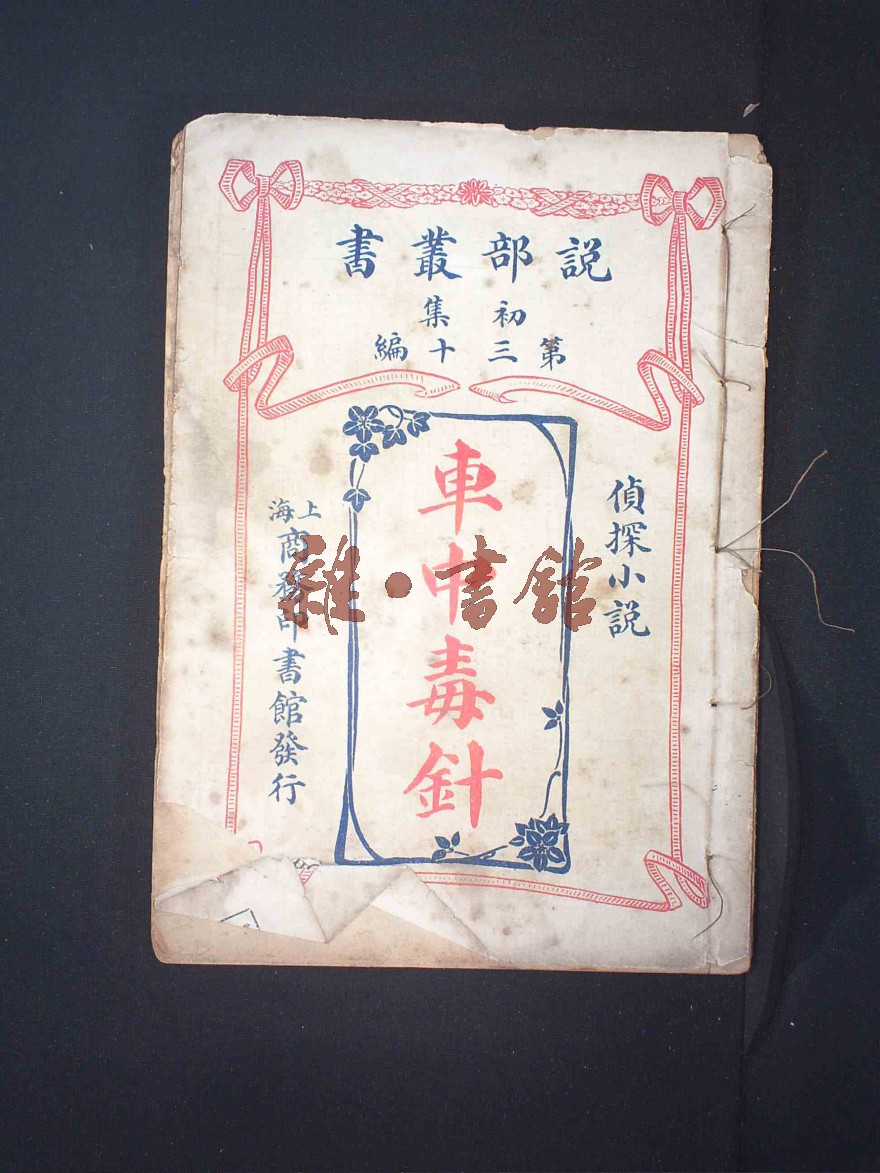 說部叢書
初集
第三十編
偵探小說
車中毒針
上海
商務印書館發行
雜·書館